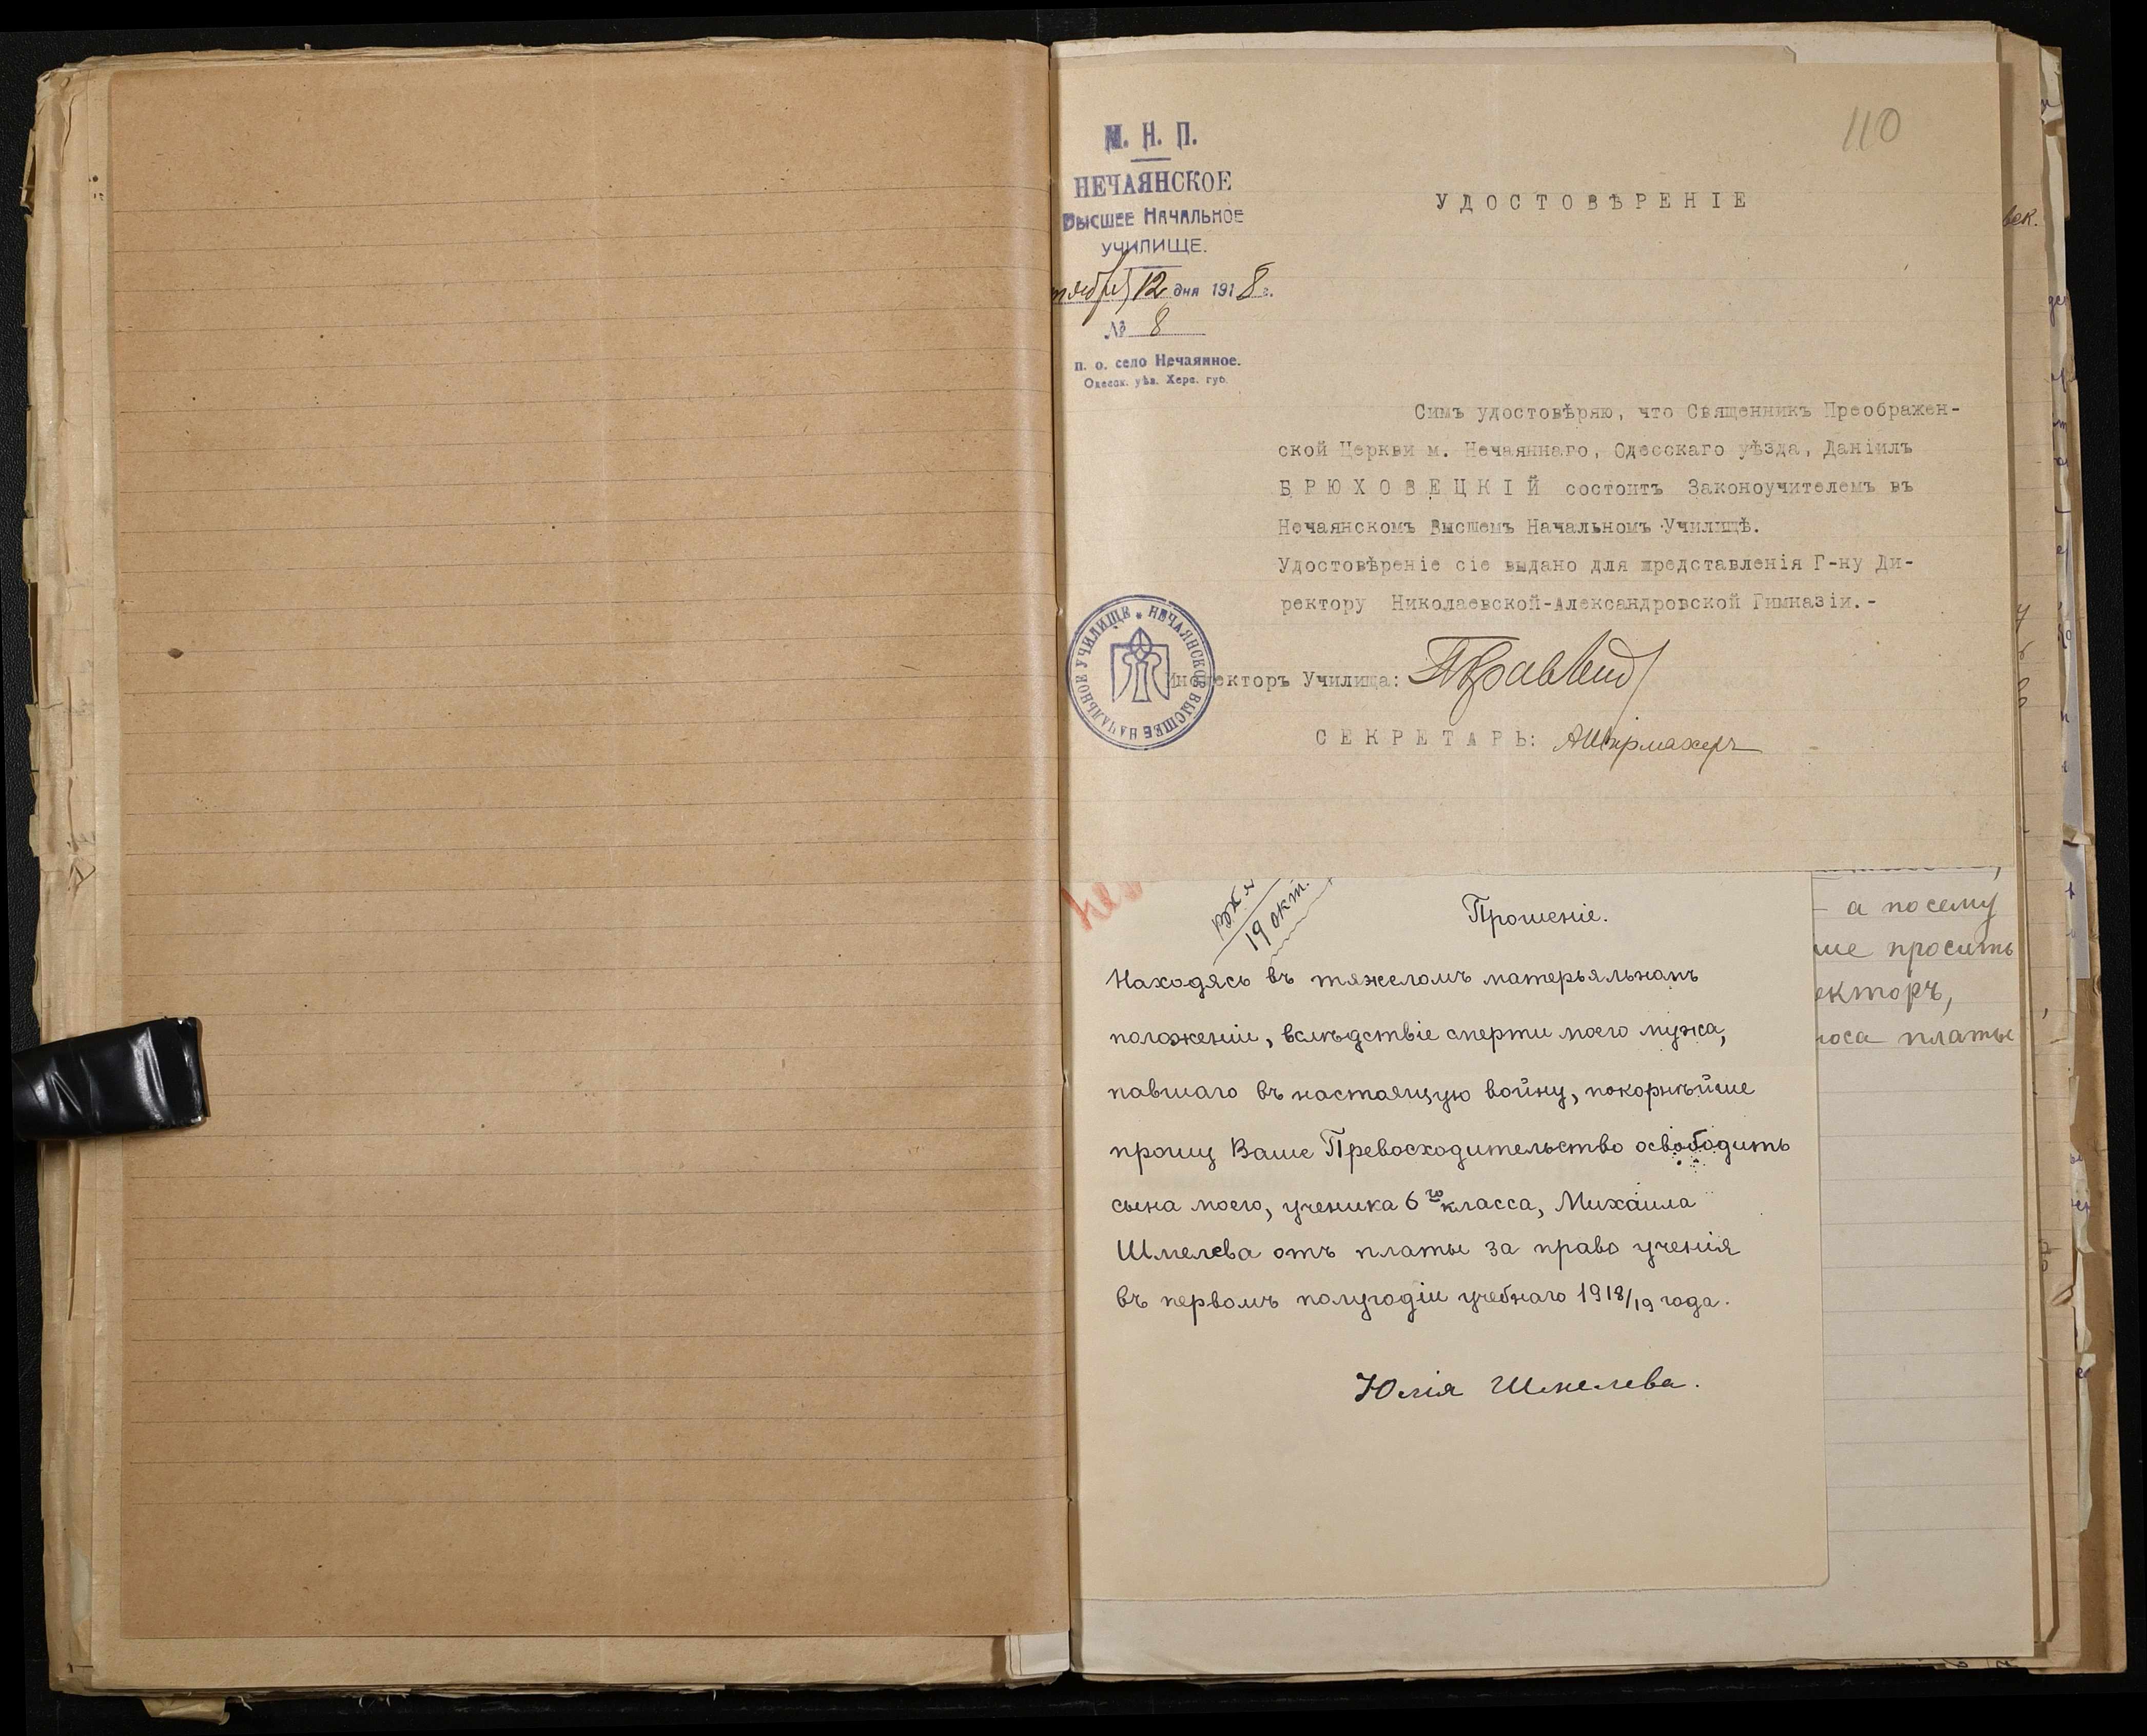 110
М. Н. П.
НЕЧАЯНСКОЕ
Высшее Начальное
УЧИЛИЩЕ.
12 дня 1918 г.
№ 8
п. о. село Нечаянное.
Одесск. уѣз. Херс. губ.
УДОСТОВѢРЕНІЕ
Симъ удостовѣряю, что Священникъ Преображен-
ской Церкви м. Нечаяннаго, Одесскаго уѣзда, Даніилъ
БРЮХОВЕЦКІЙ состоитъ Законоучителемъ въ
Нечаянскомъ Высшемъ Начальномъ Училищѣ.
Удостовѣреніе сіе выдано для представленія Г-ну Ди-
ректору Николаевской-Александровской Гимназіи.-
НЕЧАЯНСКОЕ ВЫСШЕЕ НАЧАЛЬНОЕ УЧИЛИЩЕ *
Инспекторъ Училища:
СЕКРЕТАРЬ: АШирмахеръ
век.
19 окт.
Прошеніе.
Находясь въ тяжеломъ матерьяльномъ
положеніи, вслѣдствіе смерти моего мужа,
павшаго въ настоящую войну, покорнѣйше
прошу Ваше Превосходительство освободить
сына моего, ученика 6го класса, Михаила
Шмелева отъ платы за право ученія
въ первомъ полугодіи учебнаго 1918/19 года.
Юлія Шмелева.
- а посему
ше просить
екторъ,
носа платы